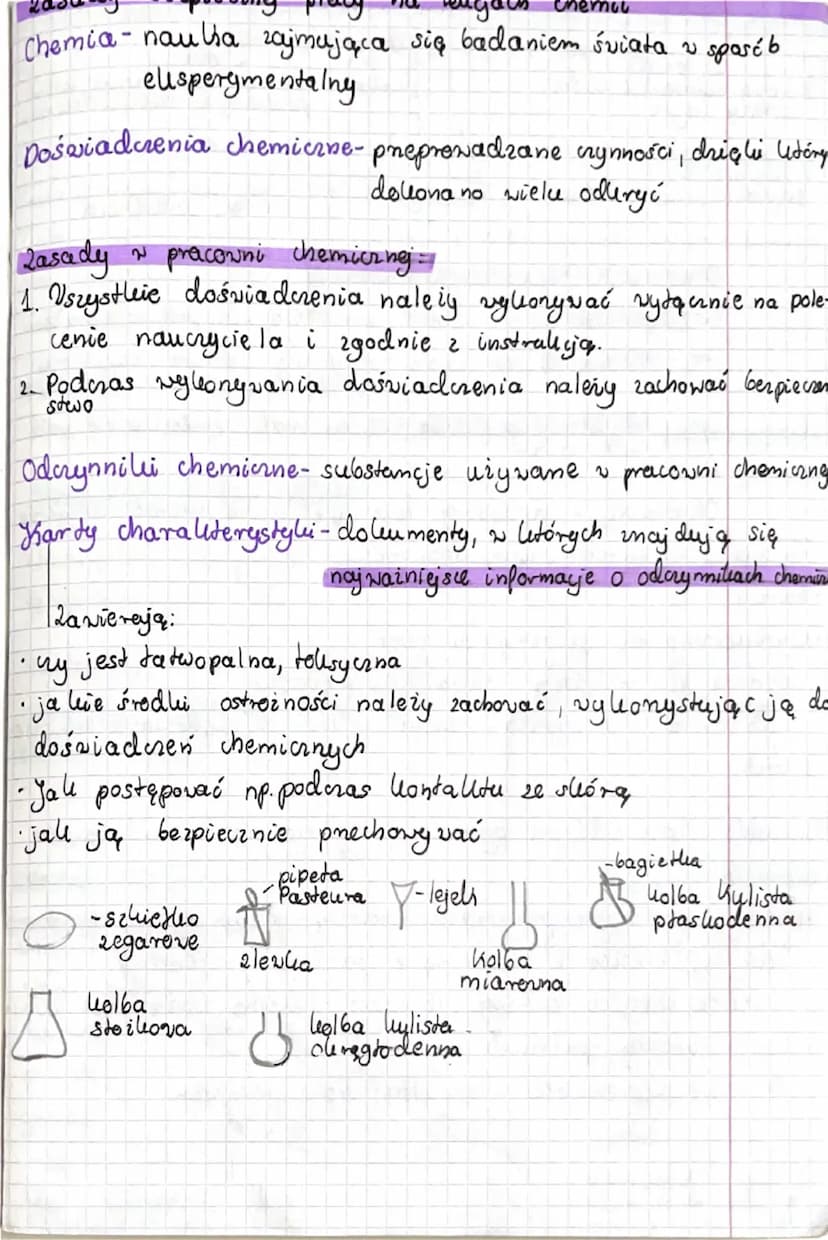 pracy na chemii
Chemia - nauka zajmująca się badaniem świata w sposób
eksperymentalny
Doświadczenia chemiczne - przeprowadzane czynności, dzięki któr
dokonano wielu odkryć
Zasady w pracowni chemicznej:
1. Wszystkie doświadczenia należy wykonywać wyłącznie na pole-
cenie nauczyciela i zgodnie z instrukcją.
2. Podczas wykonywania doświadczenia należy zachować bezpieczeń
stwo
Odczynniki chemiczne - substancje używane w pracowni chemiczne
Karty charakterystyki - dokumenty, w których znajdują się
najważniejsze informacje o odczynnikach chemicz
Zawierają:
• czy jest łatwopalna, toksyczna
• jakie środki ostrożności należy zachować, wykorzystując ją do
doświadczeń chemicznych
• Jak postępować np. podczas kontaktu ze skórą
• jak ją bezpiecznie przechowywać
- szkiełko
zegarowe
pipeta
Pasteura
zlewka
- lejek
kolba
miarowa
- bagietka
kolba kulista
płaskodenna
kolba
stożkowa
kolba kulista
okrągłodenna